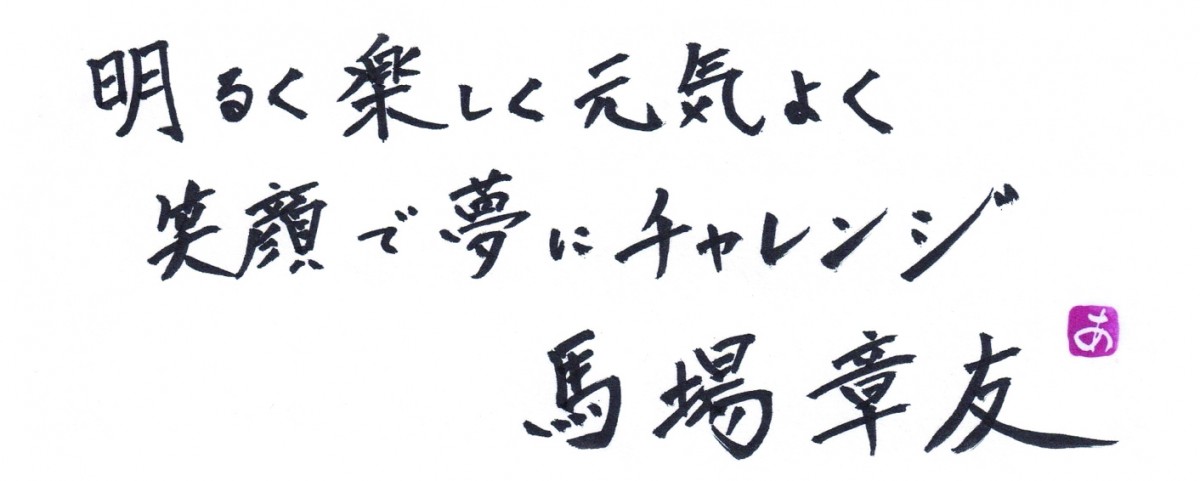 明るく楽しく元気よく
笑顔で夢にチャレンジ
馬場章友
あ